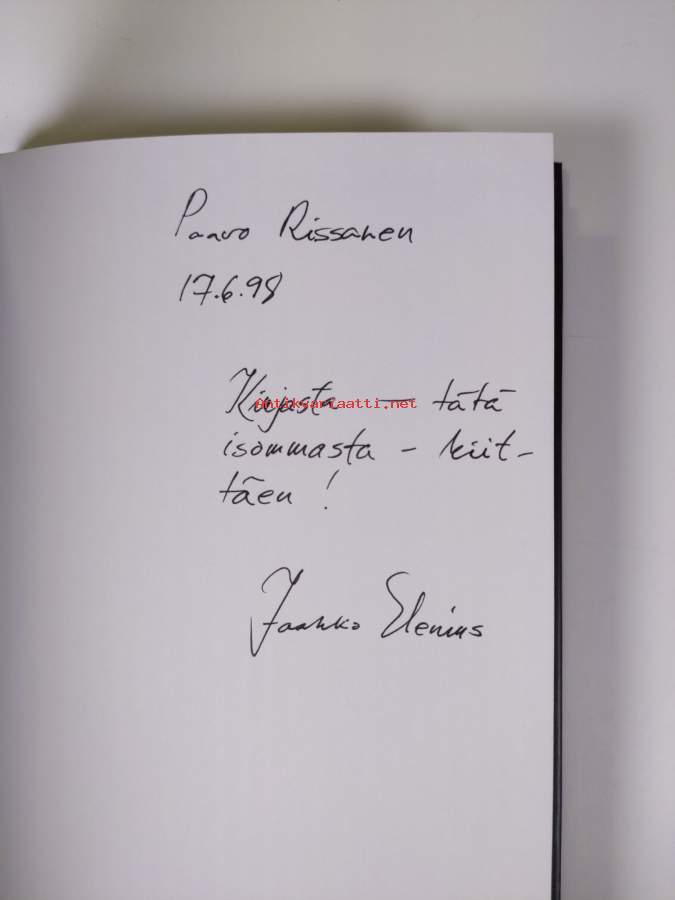 Paavo Rissanen
17.6.98
Kirjasta — tätä
Antikvariaatti.net
isommasta - kiit-
täen!
Jaakko Elenius